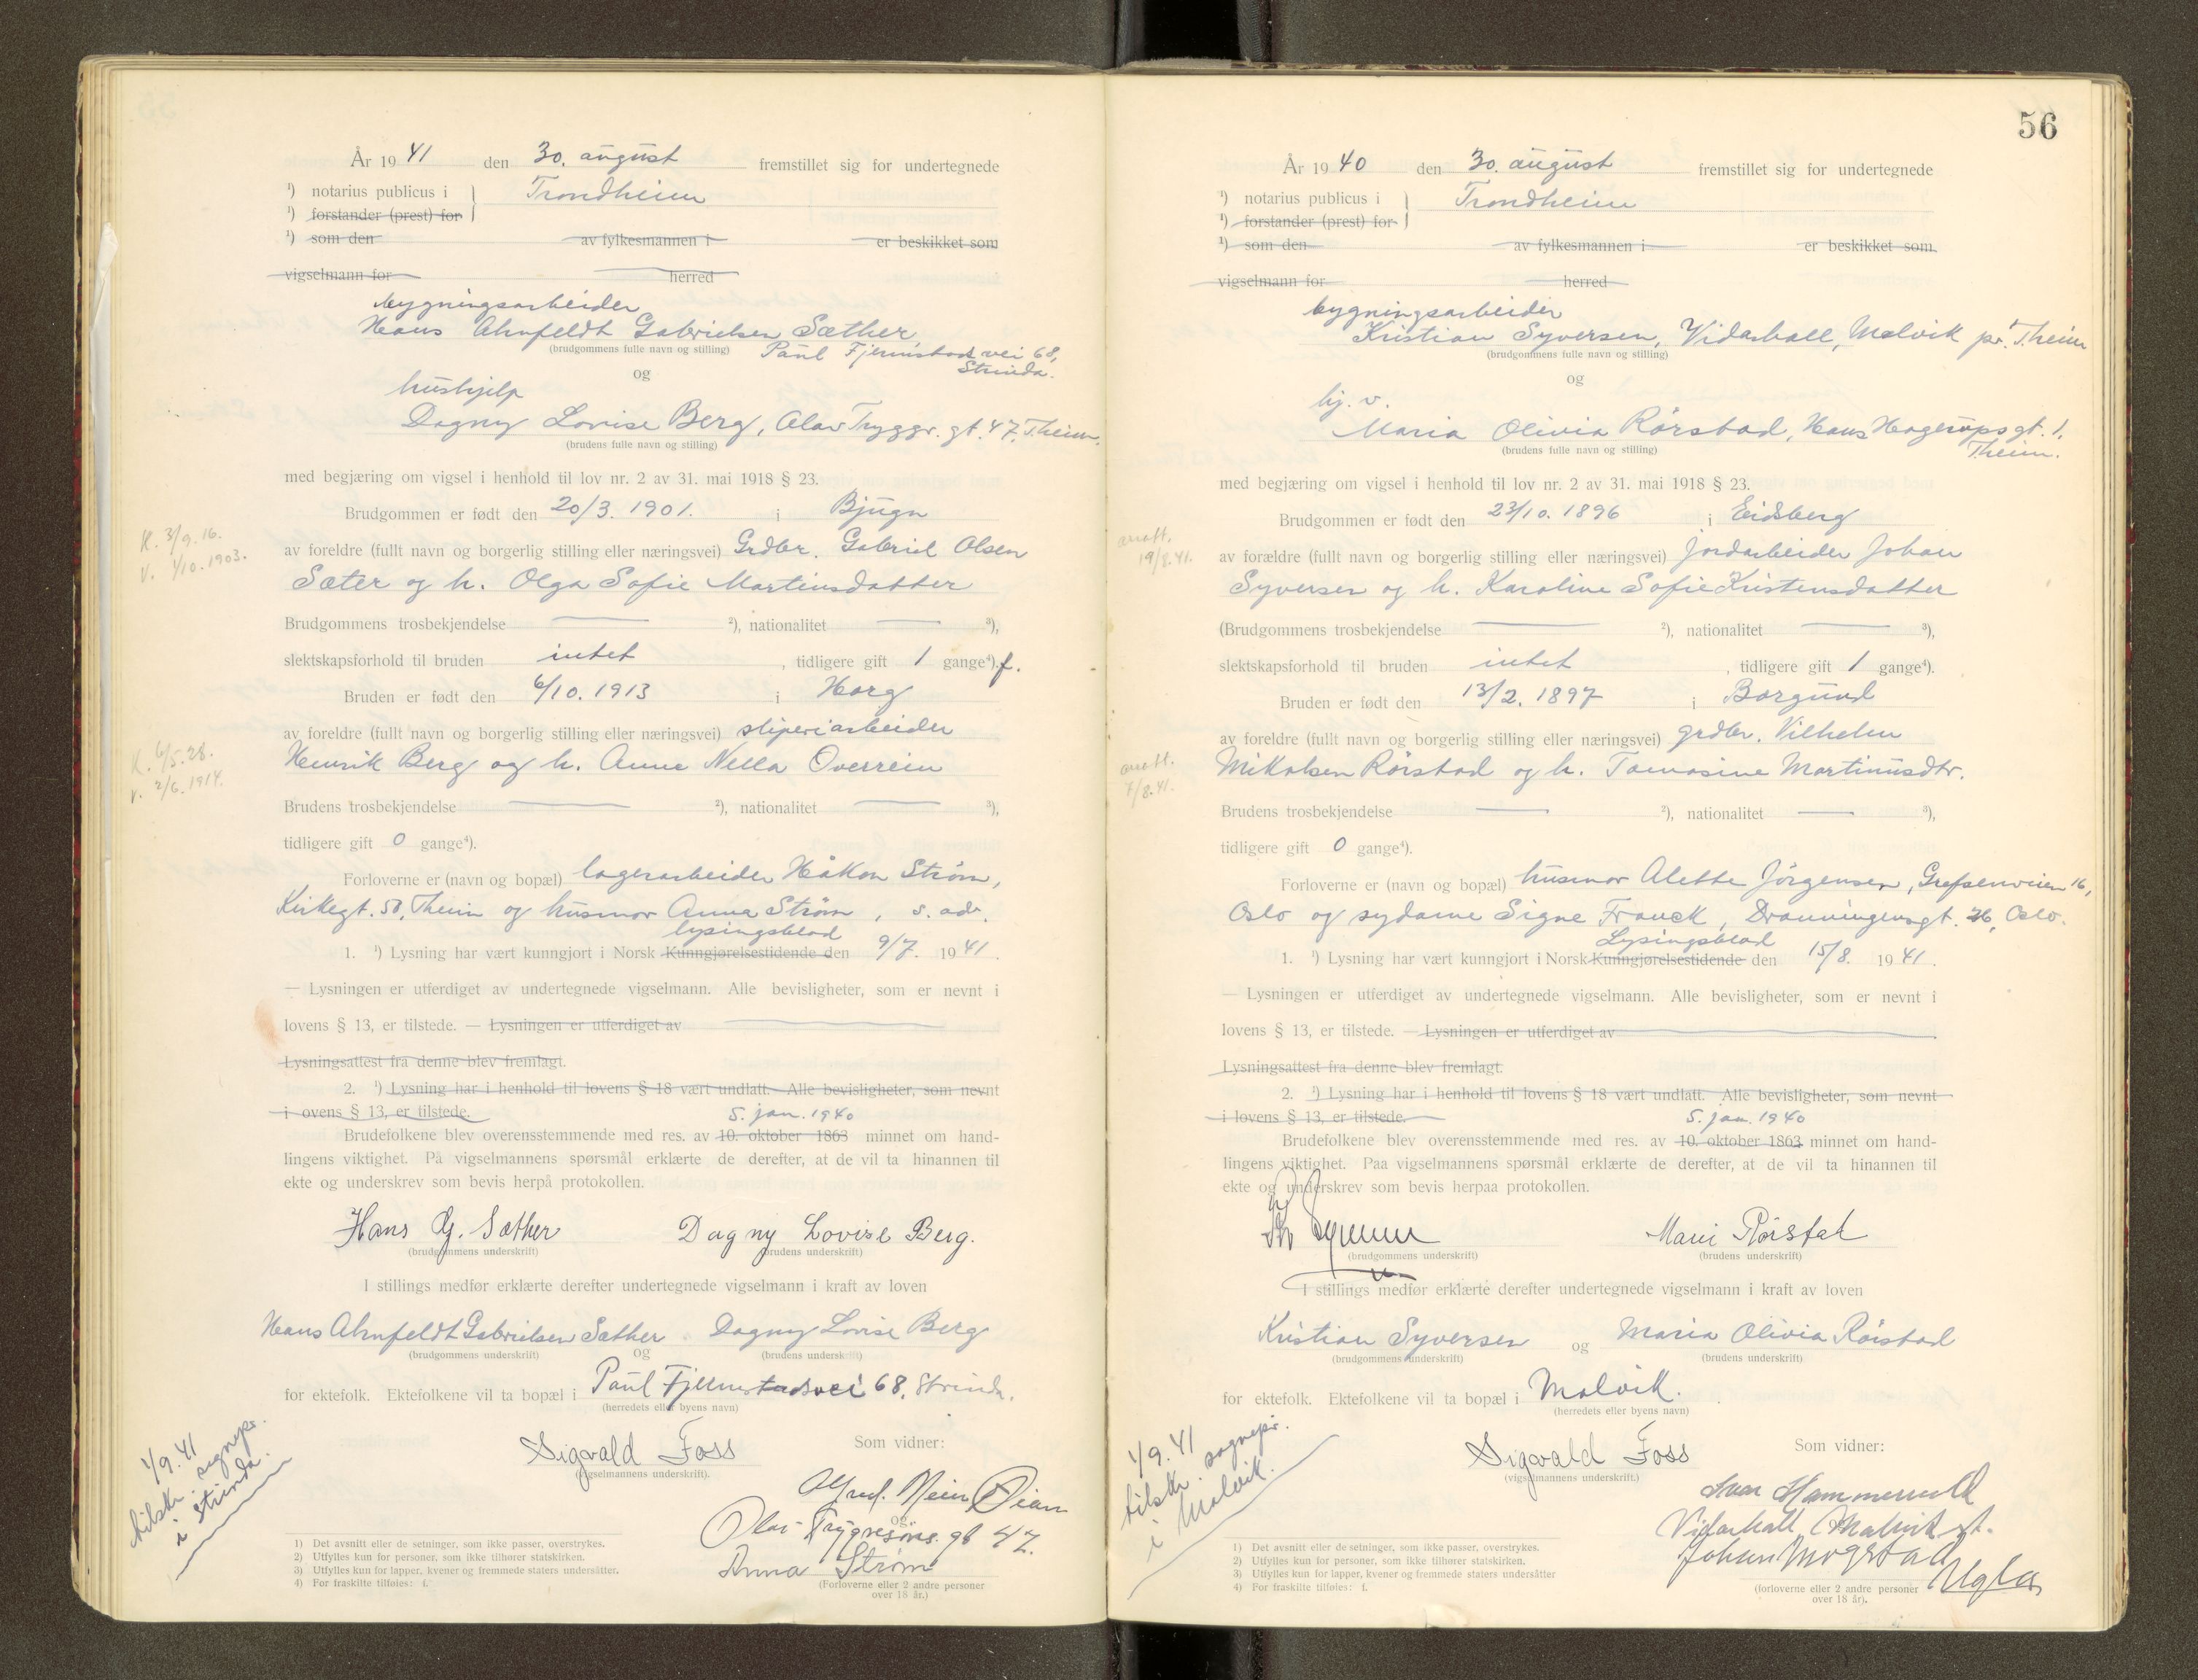 År 19 41 den 30. august fremstillet sig for undertegnede
¹) notarius publicus i Trondheim
¹) forstander (prest) for
¹) som den av fylkesmannen i er beskikket som
vigselmann for herred
bygningsarbeider
Hans Ahnfeldt Gabrielsen Sæther
(brudgommens fulle navn og stilling) Paul Fjermstads vei 68,
Strinda.
og
hushjelp
Dagny Lovise Berg, Olav Tryggv. gt. 47, Theim.
(brudens fulle navn og stilling)
med begjæring om vigsel i henhold til lov nr. 2 av 31. mai 1918 § 23.
Brudgommen er født den 20/3. 1901. i Bjugn
K. 3/9. 16.
V. 1/10. 1903.
av foreldre (fullt navn og borgerlig stilling eller næringsvei) Grdbr. Gabriel Olsen
Sæter og h. Olga Sofie Martinsdatter
Brudgommens trosbekjendelse ²), nationalitet ³),
slektskapsforhold til bruden intet , tidligere gift 1 gange⁴). f.
Bruden er født den 6/10. 1913 i Horg
av foreldre (fullt navn og borgerlig stilling eller næringsvei) sliperiarbeider
K. 6/5. 28.
v. 2/6. 1914.
Henrik Berg og h. Anne Nella Overrein
Brudens trosbekjendelse ²), nationalitet ³),
tidligere gift 0 gange⁴).
Forloverne er (navn og bopæl) lagerarbeider Håkon Strøm,
Kirkegt. 50, Theim og husmor Anna Strøm, s. adr.
lysingsblad
1. ¹) Lysning har vært kunngjort i Norsk Kunngjørelsestidende den 9/7. 19 41.
— Lysningen er utferdiget av undertegnede vigselmann. Alle bevisligheter, som er nevnt i
lovens § 13, er tilstede. — Lysningen er utferdiget av
Lysningsattest fra denne blev fremlagt.
2. ¹) Lysning har i henhold til lovens § 18 vært undlatt. Alle bevisligheter, som nevnt
i ovens § 13, er tilstede. 5. jan. 1940
Brudefolkene blev overensstemmende med res. av 10. oktober 1863 minnet om hand-
lingens viktighet. På vigselmannens spørsmål erklærte de derefter, at de vil ta hinannen til
ekte og underskrev som bevis herpå protokollen.
Hans G. Sæther Dagny Lovise Berg.
(brudgommens underskrift) (brudens underskrift)
I stillings medfør erklærte derefter undertegnede vigselmann i kraft av loven
Hans Ahnfeldt Gabrielsen Sæther Dagny Lovise Berg
(brudgommens underskrift) og (brudens underskrift)
for ektefolk. Ektefolkene vil ta bopæl i Paul Fjermstadsvei 68, Strinda.
(herredets eller byens navn)
1/9. 41
tilskr. sognepr.
i Strinda.
Sigvald Foss Som vidner:
(vigselmannens underskrift).
og
Olav Trygvesøns. gt 47.
Anna Strøm
(Forloverne eller 2 andre personer
over 18 år.)
1) Det avsnitt eller de setninger, som ikke passer, overstrykes.
2) Utfylles kun for personer, som ikke tilhører statskirken.
3) Utfylles kun for lapper, kvener og fremmede staters undersåtter.
4) For fraskilte tilføies: f.
56
År 19 40 den 30. august fremstillet sig for undertegnede
¹) notarius publicus i Trondheim
¹) forstander (prest) for
¹) som den av fylkesmannen i er beskikket som
vigselmann for herred
bygningsarbeider
Kristian Syversen, Vidarhall, Malvik pr. Theim
(brudgommens fulle navn og stilling)
og
hj. v.
Maria Olivia Rörstad, Hans Hagerups gt. 1,
(brudens fulle navn og stilling) Theim.
med begjæring om vigsel i henhold til lov nr. 2 av 31. mai 1918 § 23.
Brudgommen er født den 23/10. 1896 i Eidsberg
19/8. 41.
av forældre (fullt navn og borgerlig stilling eller næringsvei) Jordarbeider Johan
Syversen og h. Karoline Sofie Kristensdatter
(Brudgommens trosbekjendelse ²), nationalitet ³),
slektskapsforhold til bruden intet , tidligere gift 1 gange⁴).
Bruden er født den 13/2. 1897 i Borgund
av foreldre (fullt navn og borgerlig stilling eller næringsvei) grdbr. Vilhelm
7/8. 41.
Mikalsen Rörstad og h. Tomasine Martinusdtr.
Brudens trosbekjendelse ²), nationalitet ³),
tidligere gift 0 gange⁴).
Forloverne er (navn og bopæl) husmor Alette Jörgensen, Grefsenveien 16,
Oslo og sydame Signe Franck, Dronningensgt. 26, Oslo.
Lysingsblad
1. ¹) Lysning har vært kunngjort i Norsk Kunngjørelsestidende den 15/8. 19 41.
— Lysningen er utferdiget av undertegnede vigselmann. Alle bevisligheter, som er nevnt i
lovens § 13, er tilstede. — Lysningen er utferdiget av
Lysningsattest fra denne blev fremlagt.
2. ¹) Lysning har i henhold til lovens § 18 vært undlatt. Alle bevisligheter, som nevnt
i lovens § 13, er tilstede. 5. jan. 1940
Brudefolkene blev overensstemmende med res. av 10. oktober 1863 minnet om hand-
lingens viktighet. Paa vigselmannens spørsmål erklærte de derefter, at de vil ta hinannen til
ekte og underskrev som bevis herpaa protokollen.
Marie Rørstad
(brudgommens underskrift) (brudens underskrift)
I stillings medfør erklærte derefter undertegnede vigselmann i kraft av loven
Kristian Syversen og Maria Olivia Rörstad
(brudgommens underskrift) (brudens underskrift)
for ektefolk. Ektefolkene vil ta bopæl i Malvik.
(herredets eller byens navn)
1/9. 41
tilskr. sognepr.
i Malvik.
Sigvald Foss Som vidner:
(vigselmannens underskrift.)
Vidarhall, Malvik st.
Johan Mogstad
Ugla
(forloverne eller 2 andre personer
over 18 år).
1) Det avsnitt eller de setninger, som ikke passer, overstrykes.
2) Utfylles kun for personer, som ikke tilhører statskirken.
3) Utfylles kun for lapper, kvener og fremmede staters undersåtter
4) For fraskilte tilføies: f.